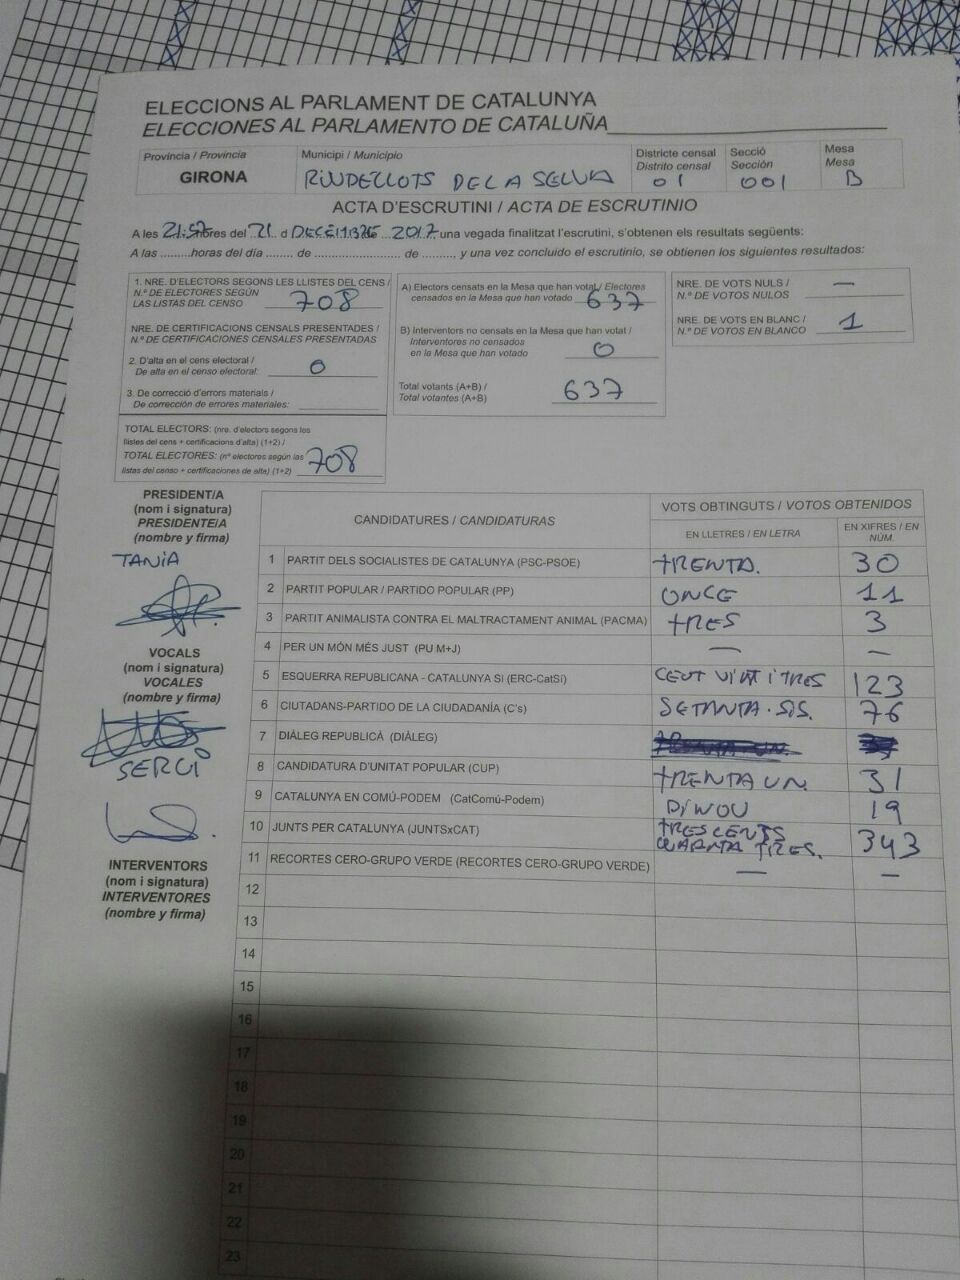 ELECCIONS AL PARLAMENT DE CATALUNYA
ELECCIONES AL PARLAMENTO DE CATALUÑA
Província / Provincia
GIRONA
Municipi / Municipio
RIUDELLOTS DE LA SELVA
Districte censal
Distrito censal
01
Secció
Sección
001
Mesa
Mesa
B
ACTA D'ESCRUTINI / ACTA DE ESCRUTINIO
A les 21:57 hores del 21 d DECEMBRE de 2017 una vegada finalitzat l'escrutini, s'obtenen els resultats següents:
A las .........horas del día ........ de ........................ de ........, y una vez concluido el escrutinio, se obtienen los siguientes resultados:
1. NRE. D'ELECTORS SEGONS LES LLISTES DEL CENS /
N.º DE ELECTORES SEGÚN
LAS LISTAS DEL CENSO 708
NRE. DE CERTIFICACIONS CENSALS PRESENTADES /
N.º DE CERTIFICACIONES CENSALES PRESENTADAS
2. D'alta en el cens electoral /
De alta en el censo electoral: 0
3. De correcció d'errors materials /
De corrección de errores materiales:
TOTAL ELECTORS: (nre. d'electors segons les
llistes del cens + certificacions d'alta) (1+2) /
TOTAL ELECTORES: (nº electores según las
listas del censo + certificaciones de alta) (1+2) 708
A) Electors censats en la Mesa que han votat / Electores
censados en la Mesa que han votado 637
B) Interventors no censats en la Mesa que han votat /
Interventores no censados
en la Mesa que han votado 0
Total votants (A+B) /
Total votantes (A+B) 637
NRE. DE VOTS NULS /
N.º DE VOTOS NULOS —
NRE. DE VOTS EN BLANC /
N.º DE VOTOS EN BLANCO 1
PRESIDENT/A
(nom i signatura)
PRESIDENTE/A
(nombre y firma)
TANIA
VOCALS
(nom i signatura)
VOCALES
(nombre y firma)
SERGI
INTERVENTORS
(nom i signatura)
INTERVENTORES
(nombre y firma)
CANDIDATURES / CANDIDATURAS
VOTS OBTINGUTS / VOTOS OBTENIDOS
EN LLETRES / EN LETRA
EN XIFRES / EN
NÚM.
1 PARTIT DELS SOCIALISTES DE CATALUNYA (PSC-PSOE) TRENTA. 30
2 PARTIT POPULAR / PARTIDO POPULAR (PP) ONCE 11
3 PARTIT ANIMALISTA CONTRA EL MALTRACTAMENT ANIMAL (PACMA) TRES 3
4 PER UN MÓN MÉS JUST (PU M+J) — —
5 ESQUERRA REPUBLICANA - CATALUNYA SÍ (ERC-CatSí) CENT VINT I TRES 123
6 CIUTADANS-PARTIDO DE LA CIUDADANÍA (C's) SETANTA·SIS. 76
7 DIÀLEG REPUBLICÀ (DIÀLEG)
8 CANDIDATURA D'UNITAT POPULAR (CUP) TRENTA UN 31
9 CATALUNYA EN COMÚ-PODEM (CatComú-Podem) DINOU 19
10 JUNTS PER CATALUNYA (JUNTSxCAT) TRESCENTS
QUARANTA TRES. 343
11 RECORTES CERO-GRUPO VERDE (RECORTES CERO-GRUPO VERDE) — —
12
13
14
15
16
17
18
19
20
21
22
23